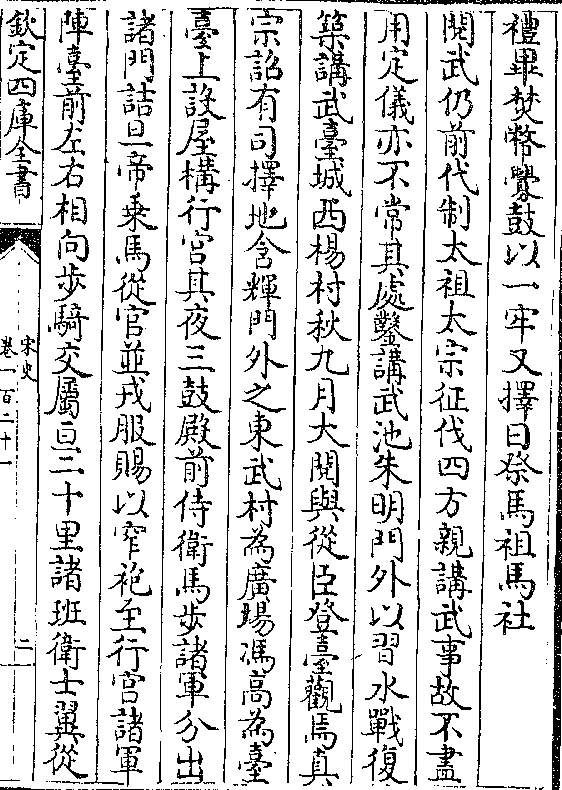 禮畢焚幣釁鼓以一牢又擇日祭馬祖馬社
閱武仍前代制太祖太宗征伐四方親講武事故不盡
用定儀亦不常其處鑿講武池朱明門外以習水戰復
築講武臺城西楊村秋九月大閱與從臣登臺觀焉真
宗詔有司擇地含輝門外之東武村為廣場馮高為臺
臺上設屋構行宫其夜三鼓殿前侍衛馬步諸軍分出
諸門詰旦帝乗馬從官並戎服賜以窄袍至行宫諸軍
陣臺前左右相向步騎交屬亘二十里諸班衛士翼從
欽定四庫全書
宋史
卷一百二十一
二